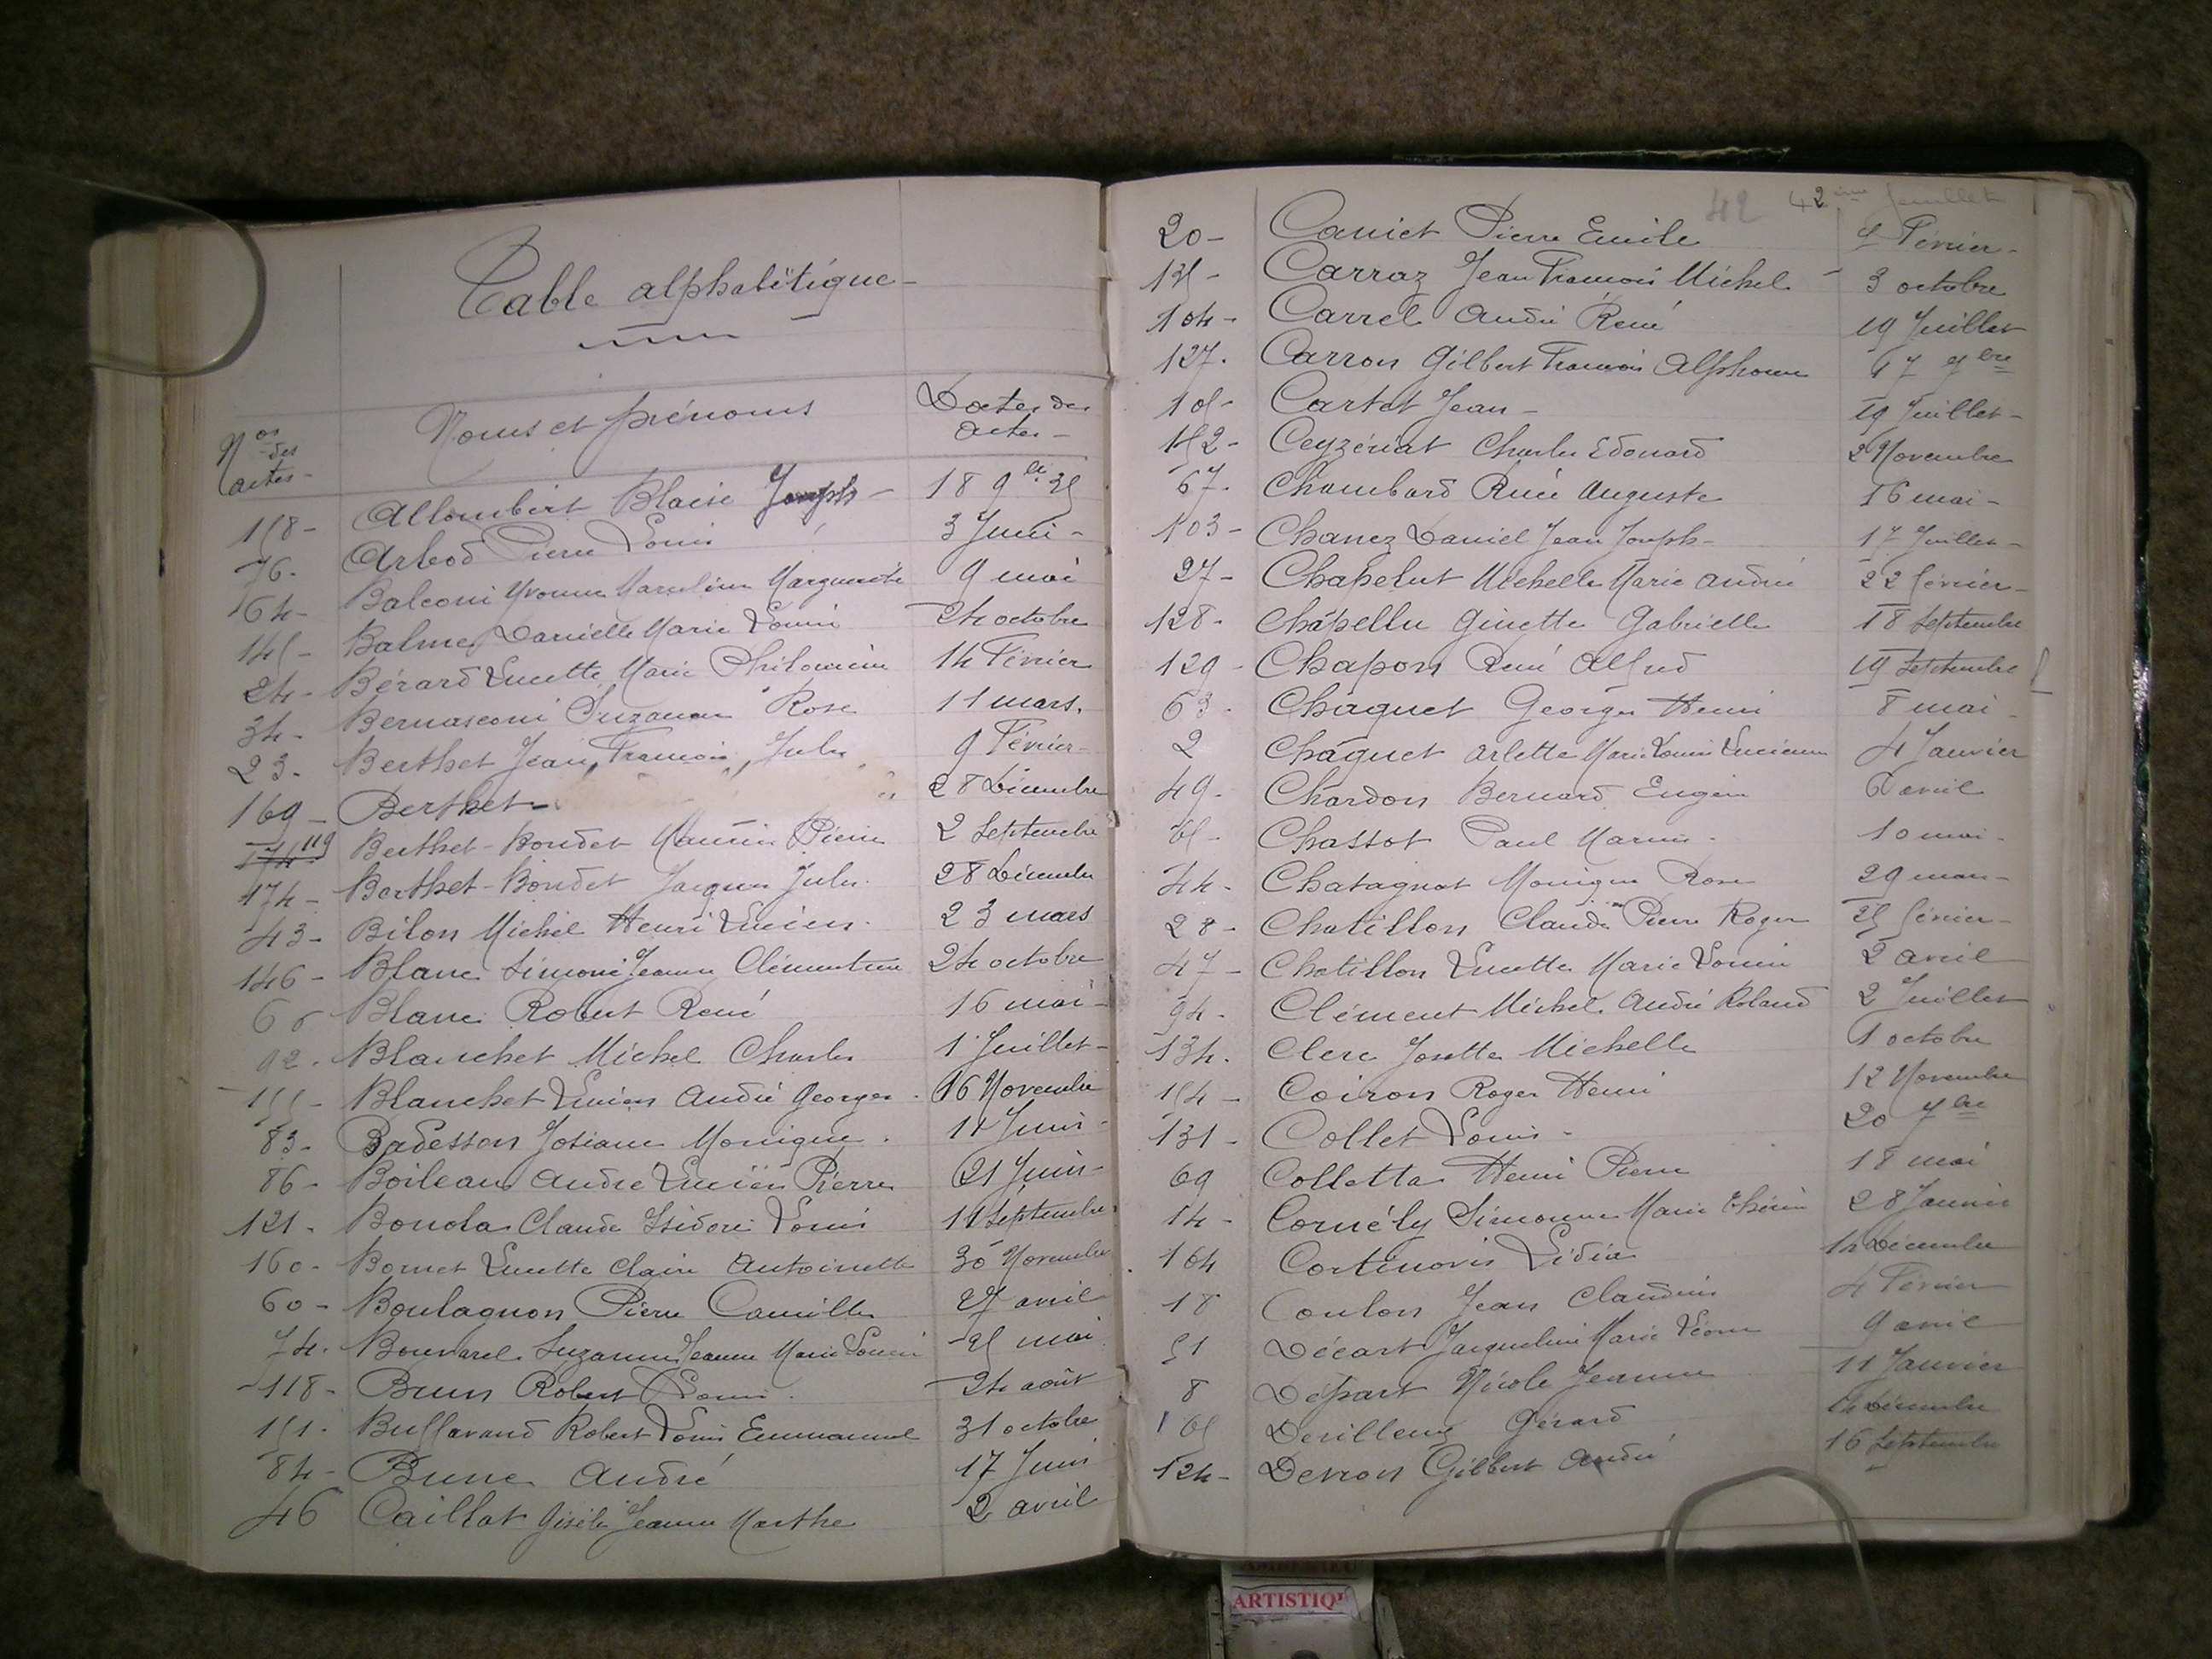 Table alphabétique
Nos des actes
Noms et prénoms
Dates des actes
158 - Allombert Blaise Joseph - 18 9bre 35
76 - Arbod Pierre Louis 3 Juin -
64 - Balconi Yvonne Marceline Marguerite 9 mai
145 - Balme Danielle Marie Louise 24 octobre
24 - Bérard Lucette Marie Philomène 14 Février
34 - Bernasconi Suzanne Rose 11 mars.
23 - Berthet Jean, François, Jules 9 Février -
169 - Berthet - 28 Décembre
119 Berthet-Bondet Maurice Pierre 2 Septembre
174 - Berthet-Bondet Jacques Jules 28 Décembre
43 - Bilon Michel Henri Lucien 23 mars
146 - Blanc Simone Jeanne Clémentine 24 octobre
Blanc Robert René 16 mai -
92 - Blanchet Michel Charles 1 Juillet -
155 - Blanchet Lucien André Georges 16 Novembre
83 - Badesson Josiane Monique Juin -
86 - Boileau André Lucien Pierre 21 Juin -
121 - Bonola Claude Isidore Louis 11 Septembre
160 - Bornet Lucette Claire Antoinette 30 Novembre
60 - Boulagnon Pierre Camille avril
74 - Bouvarel Suzanne Jeanne Marie Louise 25 mai
118 - Brun Robert Louis 24 août
151 - Buffavand Robert Louis Emmanuel 31 octobre
84 - Burne André 17 Juin
46 Caillat Gisèle Jeanne Marthe 2 avril
42 42ème feuillet
20 - Caniet Pierre Emile 5 Février -
135 - Carraz Jean François Michel - 3 octobre
104 - Carrel André René 19 Juillet
127 - Carron Gilbert François Alphonse 17 7bre
105 - Cartet Jean - 19 Juillet -
152 - Ceyzériat Charles Edouard 2 Novembre
67 - Chambard René Auguste 16 mai -
103 - Chanez Daniel Jean Joseph - 17 Juillet -
27 - Chapelut Michelle Marie Andrée 22 février -
128 - Chapellu Ginette Gabrielle 18 Septembre
129 - Chapon René Alfred 19 Septembre
63 - Chaquet Georges Henri 8 mai -
2 Chaquet Arlette Marie Louise Lucienne 4 Janvier
49 - Chardon Bernard Eugène 6 avril
65 - Chassot Paul Marius - 10 mai -
44 - Chatagnat Monique Rose 29 mars -
28 - Chatillon Claude Pierre Roger 25 février -
47 - Chatillon Lucette Marie Louise 2 avril
94 - Clément Michel André Roland 2 Juillet
134 - Clerc Josette Michelle 1 octobre
154 - Coiron Roger Henri 12 Novembre
131 - Collet Louis - 20 7bre
69 Colletta Henri Pierre 18 mai
14 - Cornély Simonne Marie Thérèse 28 Janvier
164 Cortinovis Lidia 14 Décembre
18 Coulon Jean Claudius 4 Février
51 Décart Jacqueline Marie Léone 9 avril
8 Départ Nicole Jeanne 11 Janvier
165 Gérard Décembre
124 - Devron Gilbert André 16 Septembre
ARTISTIQ